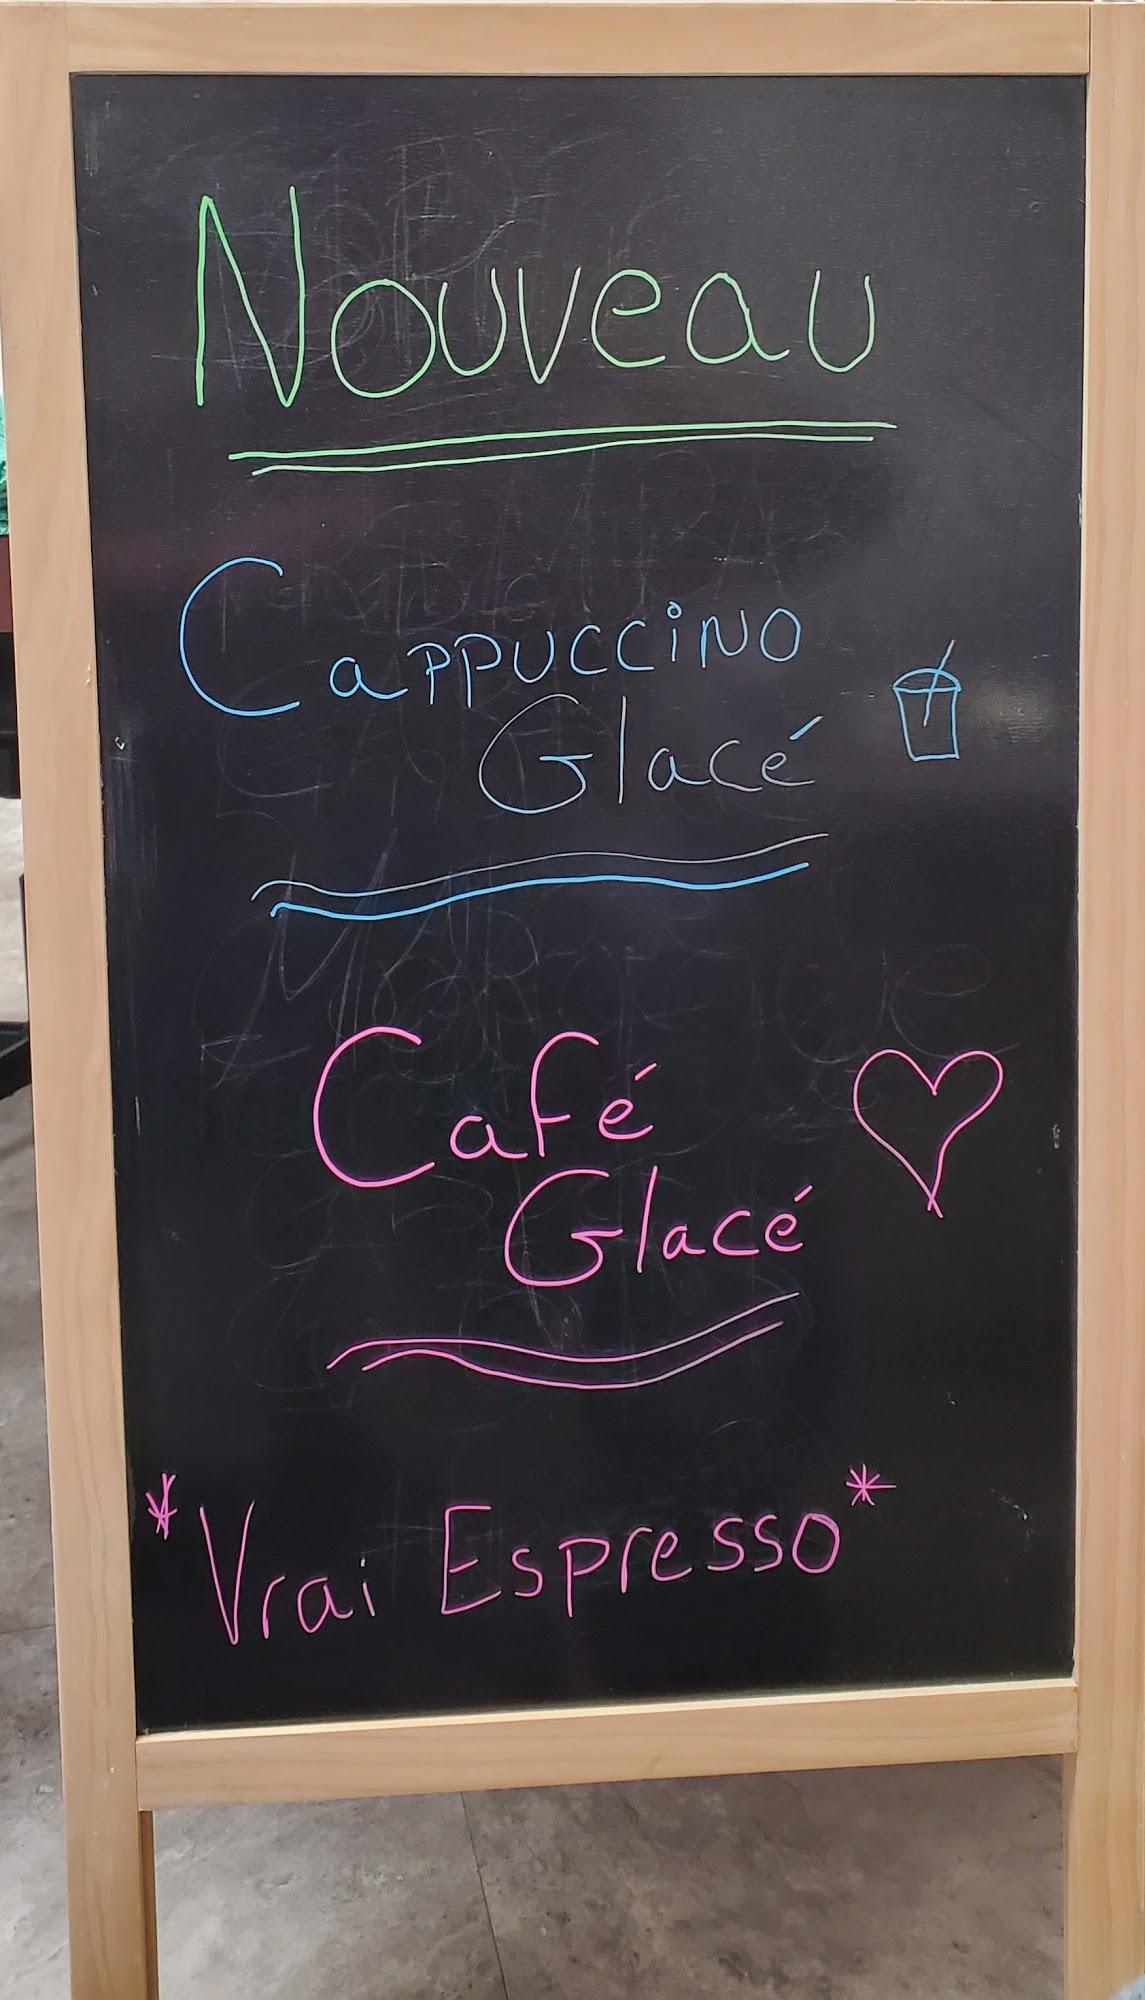 Nouveau
Cappuccino
Glacé
Café
Glacé
*Vrai Espresso*